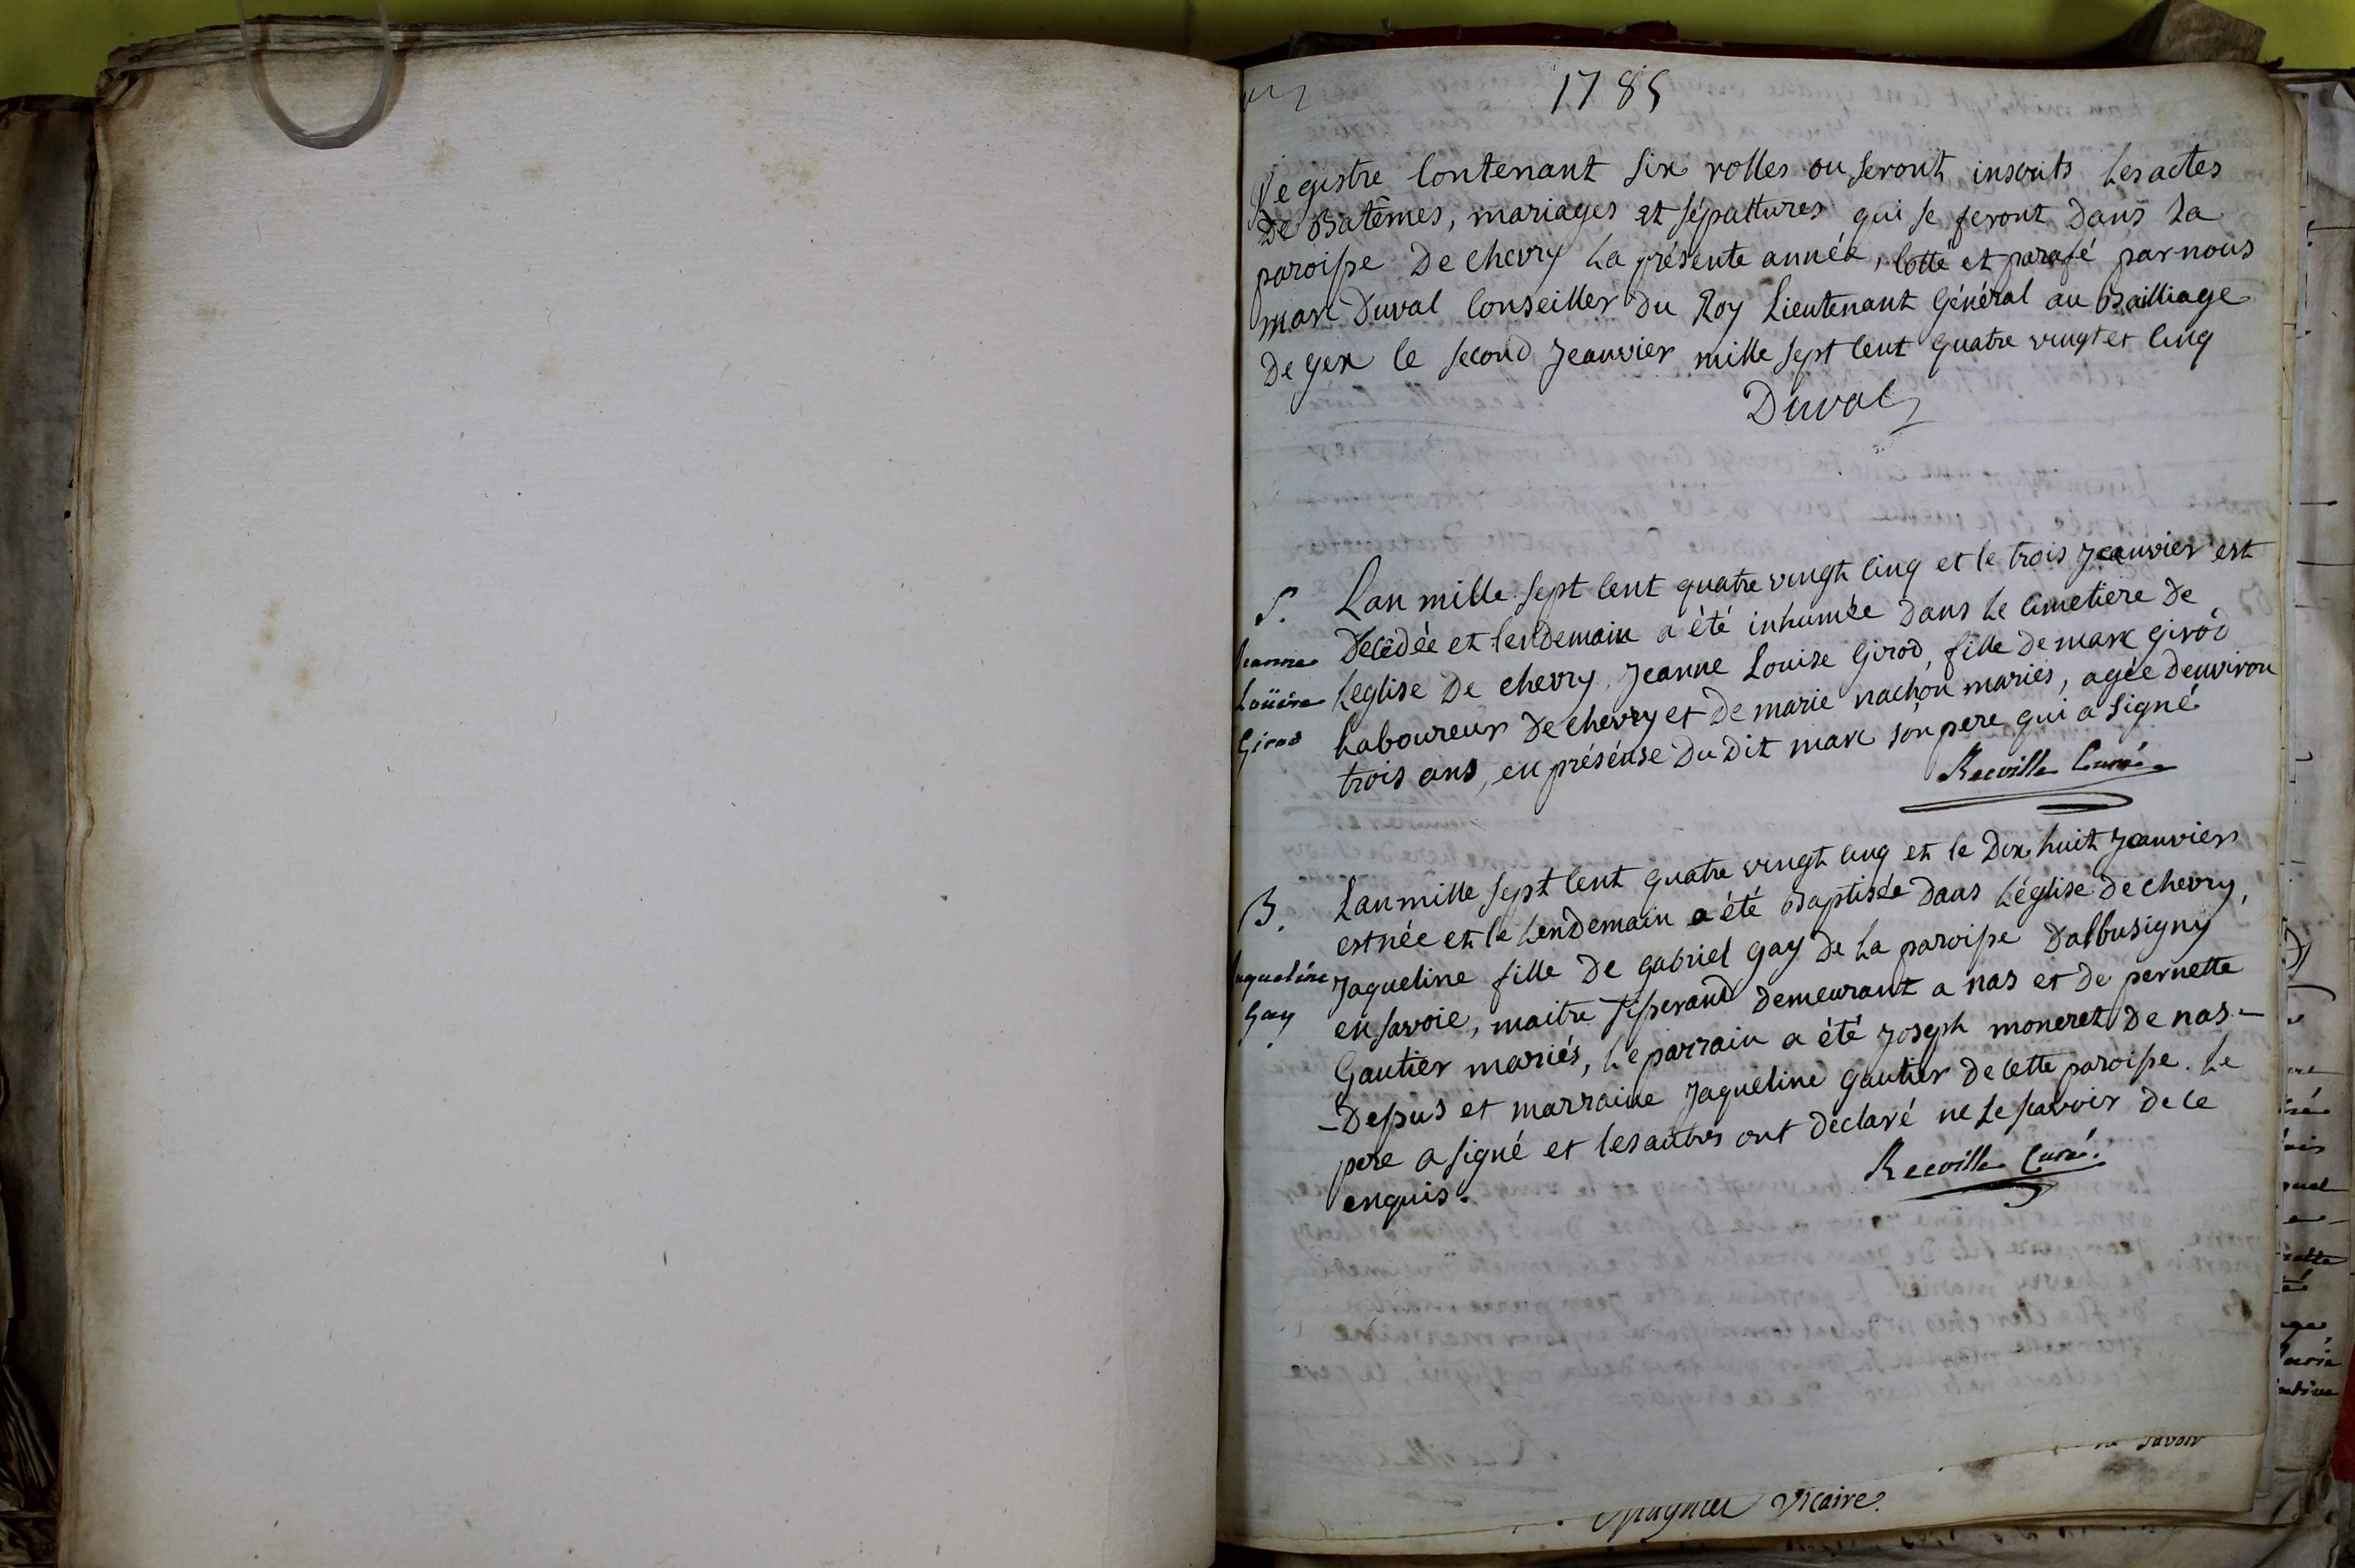 1785
Registre contenant six rolles ou seront inscrits les actes
De Batêmes, mariages et sépultures qui se feront dans La
paroisse De chevry La présente année, cotté et parafé par nous
marc Duval Conseiller Du Roy Lieutenant Général au Bailliage
De gex le second Jeanvier mille sept cent quatre vingt et cinq
Duval
S. Lan mille sept cent quatre vingt cinq et le trois Jeanvier est
Décédée et lendemain a été inhumée dans Le cimetiere De
Jeanne Léglise De chevry Jeanne Louise Girod, fille De marc girod
Loüise Laboureur De chevry et De marie nachon mariés, agée denviron
Girod trois ans, en présense Du Dit marc son pere qui a signé
Recville Curé
B. Lan mille sept cent quatre vingt cinq et le Dix huit Jeanvier
est née et le Lendemain a été Baptisée dans Léglise De chevry,
Jaqueline Jaqueline fille De gabriel gay De La paroisse Dalbusigny
Gay en savoie, maitre tisserand Demeurant a nas et De pernette
Gautier mariés, Le parrain a été Joseph moneret De nas-
-Dessus et marraine Jaqueline gautier De cette paroisse. Le
pere a signé et les autres ont déclaré ne Le scavoir De ce
enquis.
Recville Curé.
savoir
Vicaire.